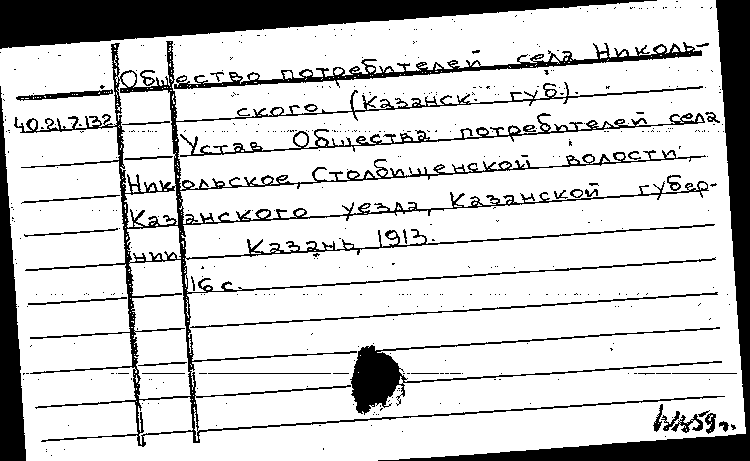 Общество потребителей села Николь-
ского. (Казанск. губ.).
40.21.7.132
Устав Общества потребителей села
Никольское, Столбищенской волости,
Казанского уезда, Казанской губер-
нии Казань, 1913.
16 с.
59 г.